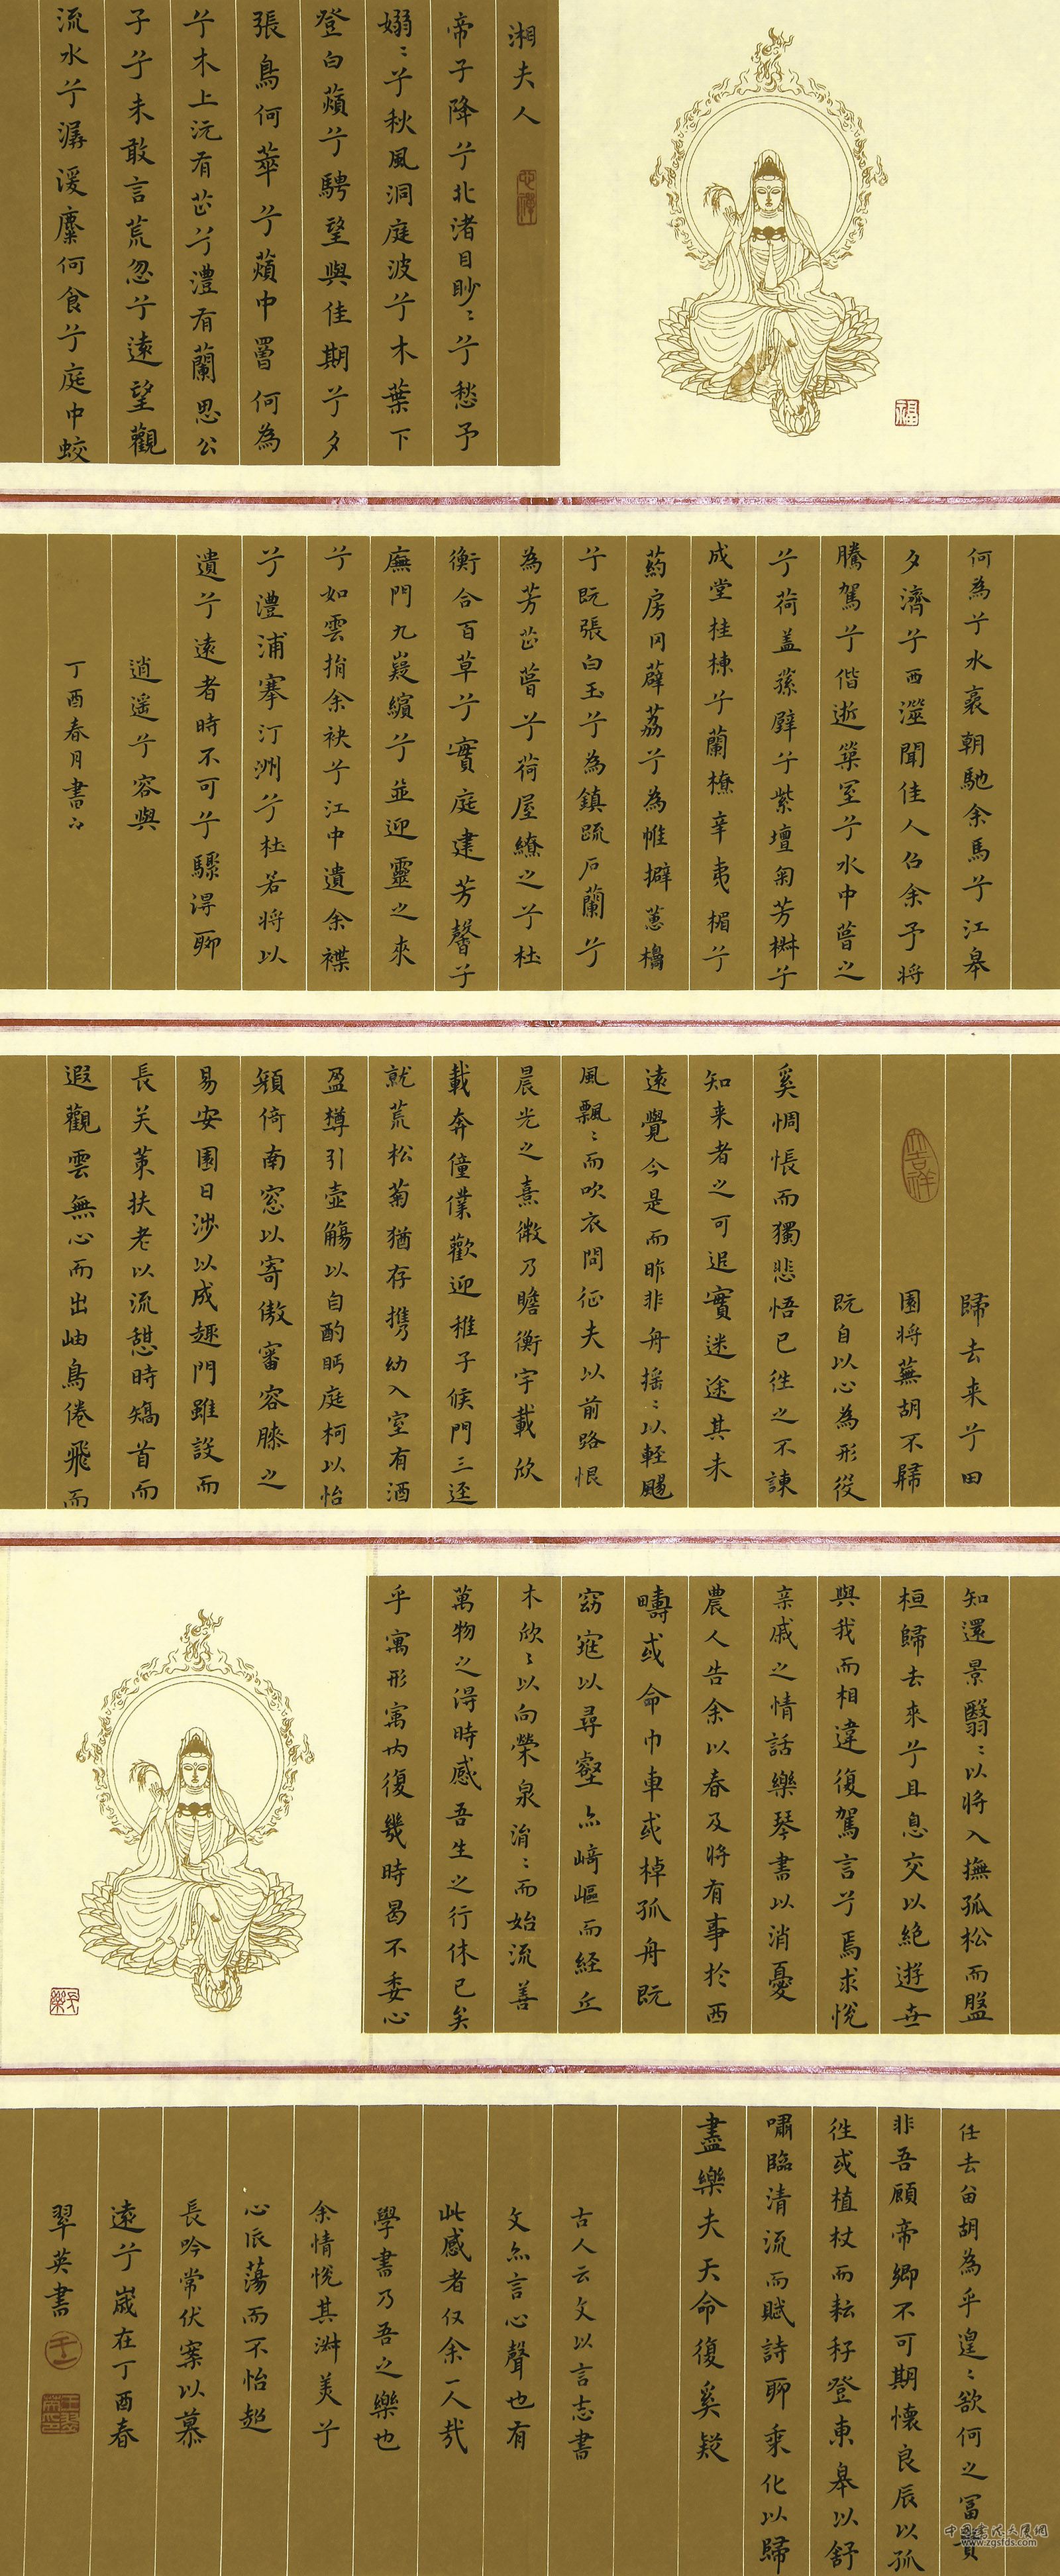 湘夫人
帝子降兮北渚目眇〻兮愁予
嫋〻兮秋風洞庭波兮木葉下
登白薠兮騁望與佳期兮夕
張鳥何萃兮蘋中罾何為
兮木上沅有芷兮澧有蘭思公
子兮未敢言荒忽兮遠望觀
流水兮潺湲麋何食兮庭中蛟
福
何為兮水裔朝馳余馬兮江皋
夕濟兮西澨聞佳人召余予將
騰駕兮偕逝築室兮水中葺之
兮荷盖蓀壁兮紫壇匊芳椒兮
成堂桂棟兮蘭橑辛夷楣兮
葯房罔薜荔兮為帷擗蕙櫋
兮既張白玉兮為鎮疏石蘭兮
為芳芷葺兮荷屋繚之兮杜
衡合百草兮實庭建芳馨兮
廡門九嶷繽兮並迎靈之來
兮如雲捐余袂兮江中遺余褋
兮澧浦搴汀洲兮杜若將以
遺兮遠者時不可兮驟得聊
逍遥兮容與
丁酉春月書
吉祥
歸去来兮田
園將蕪胡不歸
既自以心為形役
奚惆悵而獨悲悟已徃之不諫
知来者之可追實迷途其未
遠覺今是而昨非舟摇〻以輕颺
風飄〻而吹衣問征夫以前路恨
晨光之熹微乃瞻衡宇載欣
載奔僮僕歡迎稚子候門三逕
就荒松菊猶存攜幼入室有酒
盈樽引壺觴以自酌眄庭柯以怡
顏倚南窓以寄傲審容膝之
易安園日涉以成趣門雖設而
長关策扶老以流憩時矯首而
遐觀雲無心而出岫鳥倦飛而
知還景翳〻以將入撫孤松而盤
桓歸去來兮且息交以絕遊世
與我而相違復駕言兮焉求悦
亲戚之情話樂琴書以消憂
農人告余以春及將有事於西
疇或命巾車或棹孤舟既
窈窕以尋壑亦崎嶇而経丘
木欣〻以向榮泉涓〻而始流善
萬物之得時感吾生之行休已矣
乎寓形寓内復幾時曷不委心
任去留胡為乎遑〻欲何之冨貴
非吾願帝鄉不可期懷良辰以孤
徃或植杖而耘秄登東皋以舒
嘯臨清流而賦詩聊乘化以歸
盡樂夫天命復奚疑
古人云文以言志書
文亦言心聲也有
此感者仅余一人哉
學書乃吾之樂也
余情悦其淑美兮
心振蕩而不怡超
長吟常伏案以慕
遠兮嵗在丁酉春
翠英書
中国書法大厦網
www.zgsfds.com